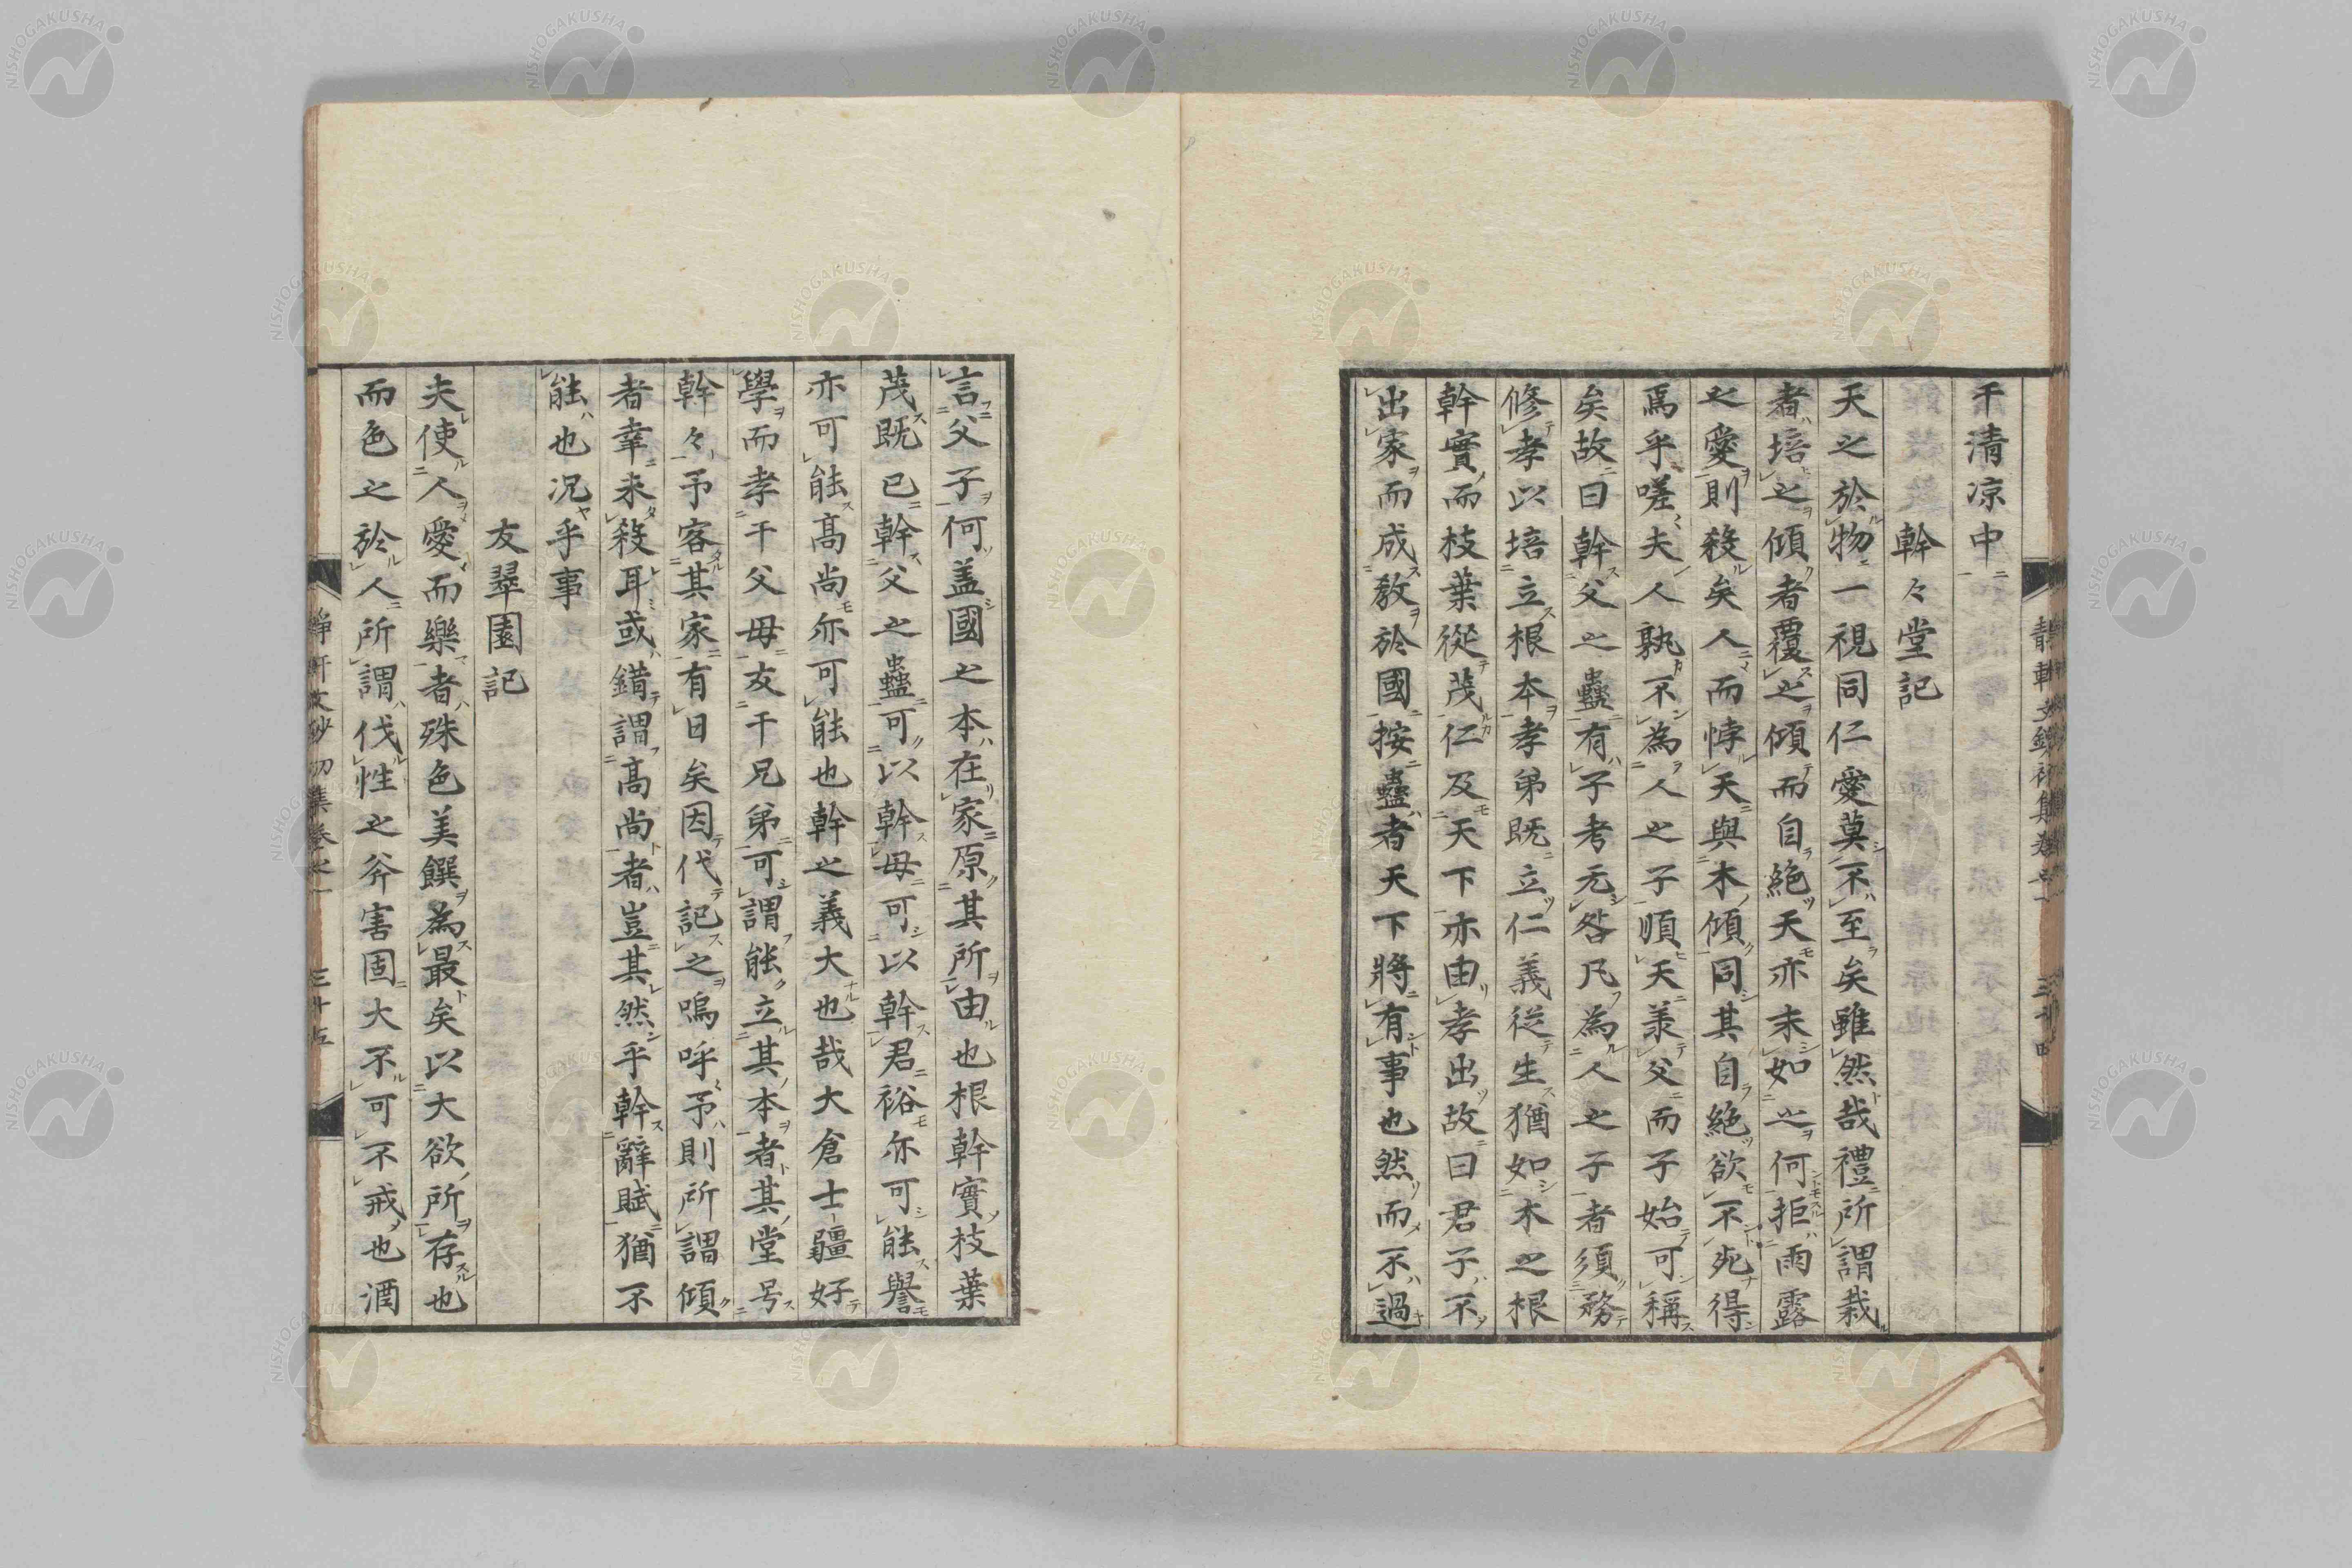 干清凉中
幹々堂記
天之於物一視同仁愛莫不至矣雖然哉禮所謂栽
者培之傾者覆之傾而自絶天亦未如之何拒雨露
之愛則殺矣人而悖天與木傾同其自絶欲不死得
焉乎嗟夫人孰不為人之子順天羕父而子始可稱
矣故曰幹父之蠱有子考无咎凡為人之子者須務
修孝以培立根本孝弟既立仁義従生猶如木之根
幹實而枝葉從茂仁及天下亦由孝出故曰君子不
出家而成教於國按蠱者天下將有事也然而不過
言父子何盖國之本在家原其所由也根幹實枝葉
茂既已幹父之蠱可以幹母可以幹君裕亦可能譽
亦可能高尚亦可能也幹之義大也哉大倉士疆好
學而孝于父母友于兄弟可謂能立其本者其堂号
幹々予客其家有日矣因代記之嗚呼予則所謂傾
者幸未殺耳或錯謂高尚者豈其然乎幹辭賦猶不
能也况乎事
友翠園記
夫使人愛而樂者殊色美饌為最矣以大欲所存也
而色之於人所謂伐性之斧害固大不可不戒也酒
靜軒文鈔初集卷之一
三十四
靜軒文鈔初集卷之一
三十五
NISHOGAKUSHA